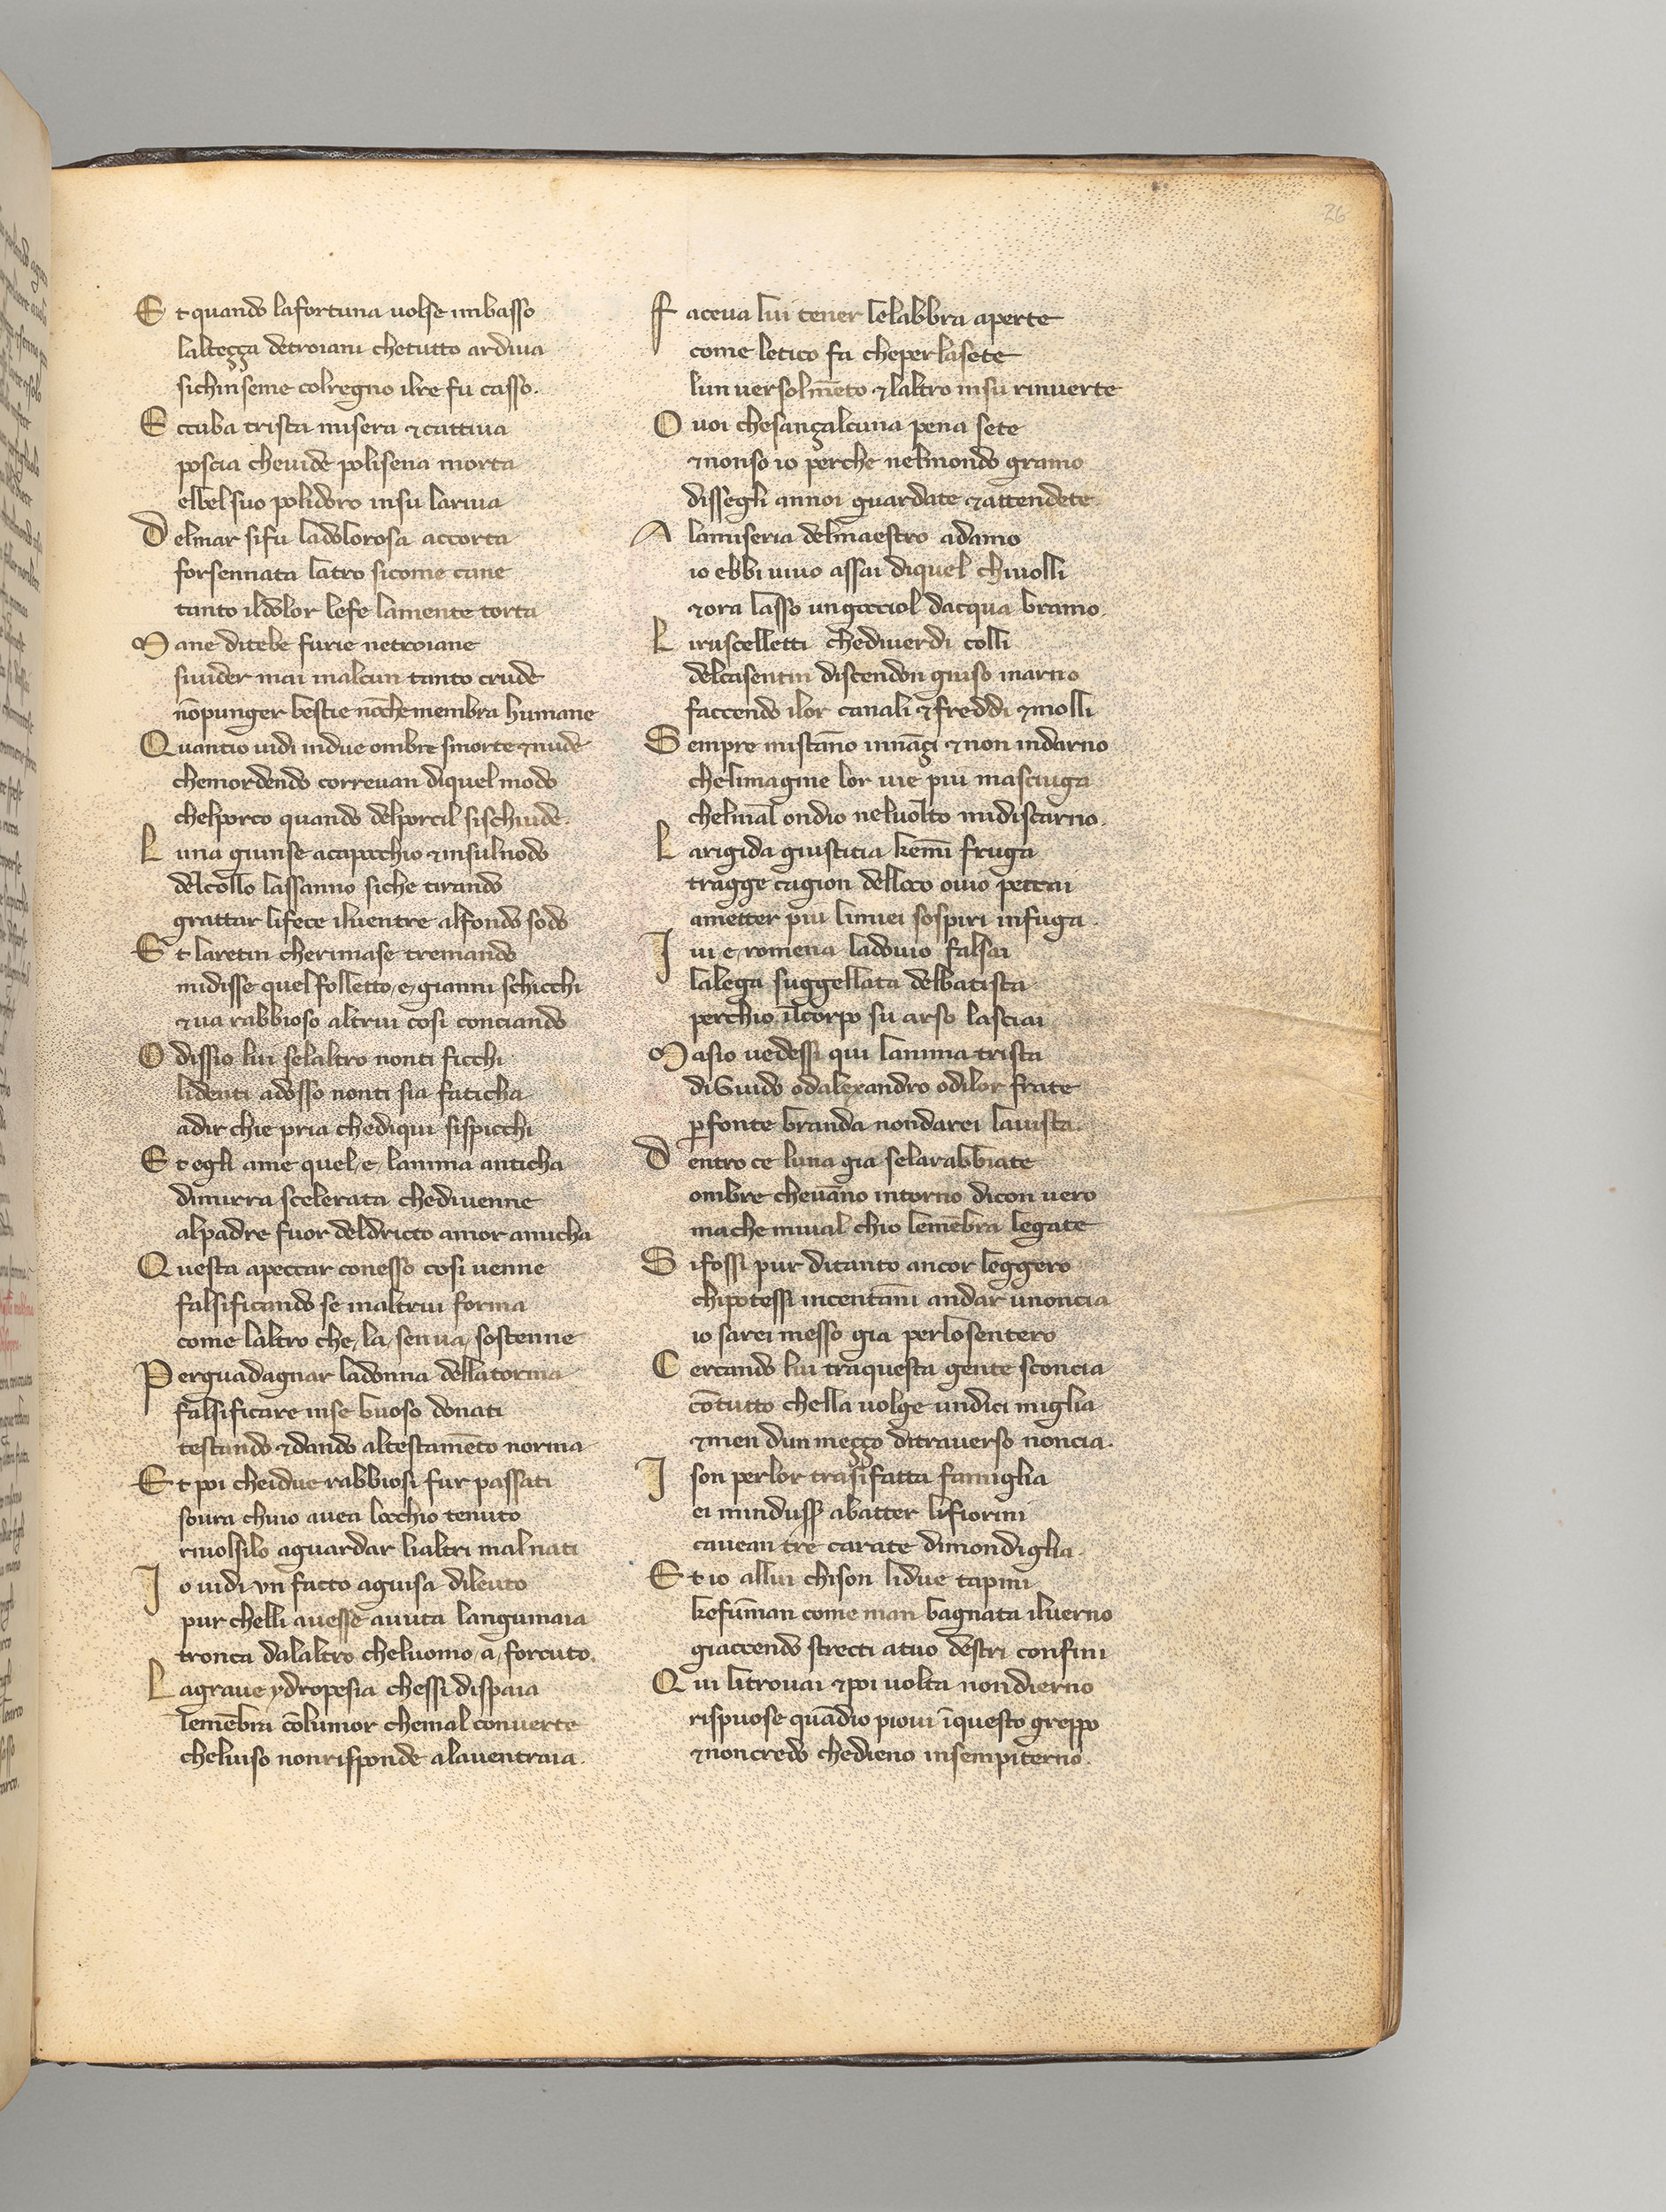 26
Et quando lafortuna uolse imbasso
lalteçça detroiani chetutto ardiua
sichinseme colregno ilre fu casso.
Eccuba trista misera ⁊ cattiua
poscia cheuide polisena morta
elbel suo polidoro insu lariua
Delmar sifu ladolorosa accorta
forsennata latro sicome cane
tanto ildolor lefe lamente torta
Mane ditebe furie netroiane
siuider mai inalcun tanto crude
nōpunger bestie nōchemembra humane
Quantio uidi indue ombre smorte ⁊nude
chemordendo correuan diquel modo
chelporco quando delporcil sischiude.
Luna giunse acapocchio ⁊insulnodo
delcollo lassanno siche tirando
grattar lifece iluentre alfondo sodo
Et laretin cherimase tremando
midisse quel folletto e gianni schicchi
⁊ua rabbioso altrui cosi conciando
O dissio lui selaltro nonti ficchi
lidenti adosso nonti sia faticha
adir chie pria chediqui sispicchi
Et egli ame quel e lanima anticha
dimirra scelerata chediuenne
alpadre fuor deldricto amor amicha
Questa apeccar conesso cosi uenne
falsificando se inaltrui forma
come laltro che la senua sostenne
Perguadagnar ladonna dellatorma
falsificare inse buoso donati
testando ⁊dando altestamēto norma
Et poi cheidue rabbiosi fur passati
soura chuio auea locchio tenuto
riuolsilo aguardar lialtri mal nati
Io uidi vn facto aguisa dileuto
pur chelli auesse auuta languinaia
tronca dalaltro cheluomo a forcuto.
Lagraue ydropesia chessi dispaia
lemēbra cōlumor chemal conuerte
cheluiso nonrisponde alauentraia.
Faceua lui tener lelabbra aperte
come letico fa cheperlasete
lun uersolmēto ⁊laltro insu rinuerte
O uoi chesançalcuna pena sete
⁊nonso io perche nelmondo gramo
dissegli annoi guardate ⁊attendete
A lamiseria delmaestro adamo
io ebbi uiuo assai diquel chiuolli
⁊ora lasso ungocciol dacqua bramo.
Liruscelletti chediuerdi colli
delcasentin discendon giuso inarno
faccendo ilor canali ⁊freddi ⁊molli
Sempre mistāno innāçi ⁊non indarno
chelimagine lor uie piu masciuga
chelmal ondio neluolto midiscarno.
Larigida giustitia kemi fruga
tragge cagion delloco ouio peccai
ametter piu limiei sospiri infuga.
Iui e romena ladouio falsai
lalega suggellata delbatista
perchio ilcorpo su arso lasciai
Masio uedessi qui lanima trista
diGuido odalexandro odilor frate
ꝑfonte branda nondarei lauista.
Dentro ce luna gia selarabbiate
ombre cheuāno intorno dicon uero
mache miual chio lemēbra legate
Sifossi pur ditanto ancor leggero
chipotessi incentāni andar unoncia
io sarei messo gia perlosentero
Cercando lui traquesta gente sconcia
cōtutto chella uolge undici miglia
⁊men dun meçço ditrauerso noncia.
I son perlor trasifatta famiglia
ei minduss abatter lifiorini
cauean tre carate dimondiglia.
Et io allui chison lidue tapini
kefūman come man bagnata iluerno
giaccendo strecti atuo destri confini
Qui litrouai ⁊poi uolta nondierno
rispuose quādio pioui īquesto greppo
⁊noncredo chedieno insempiterno.